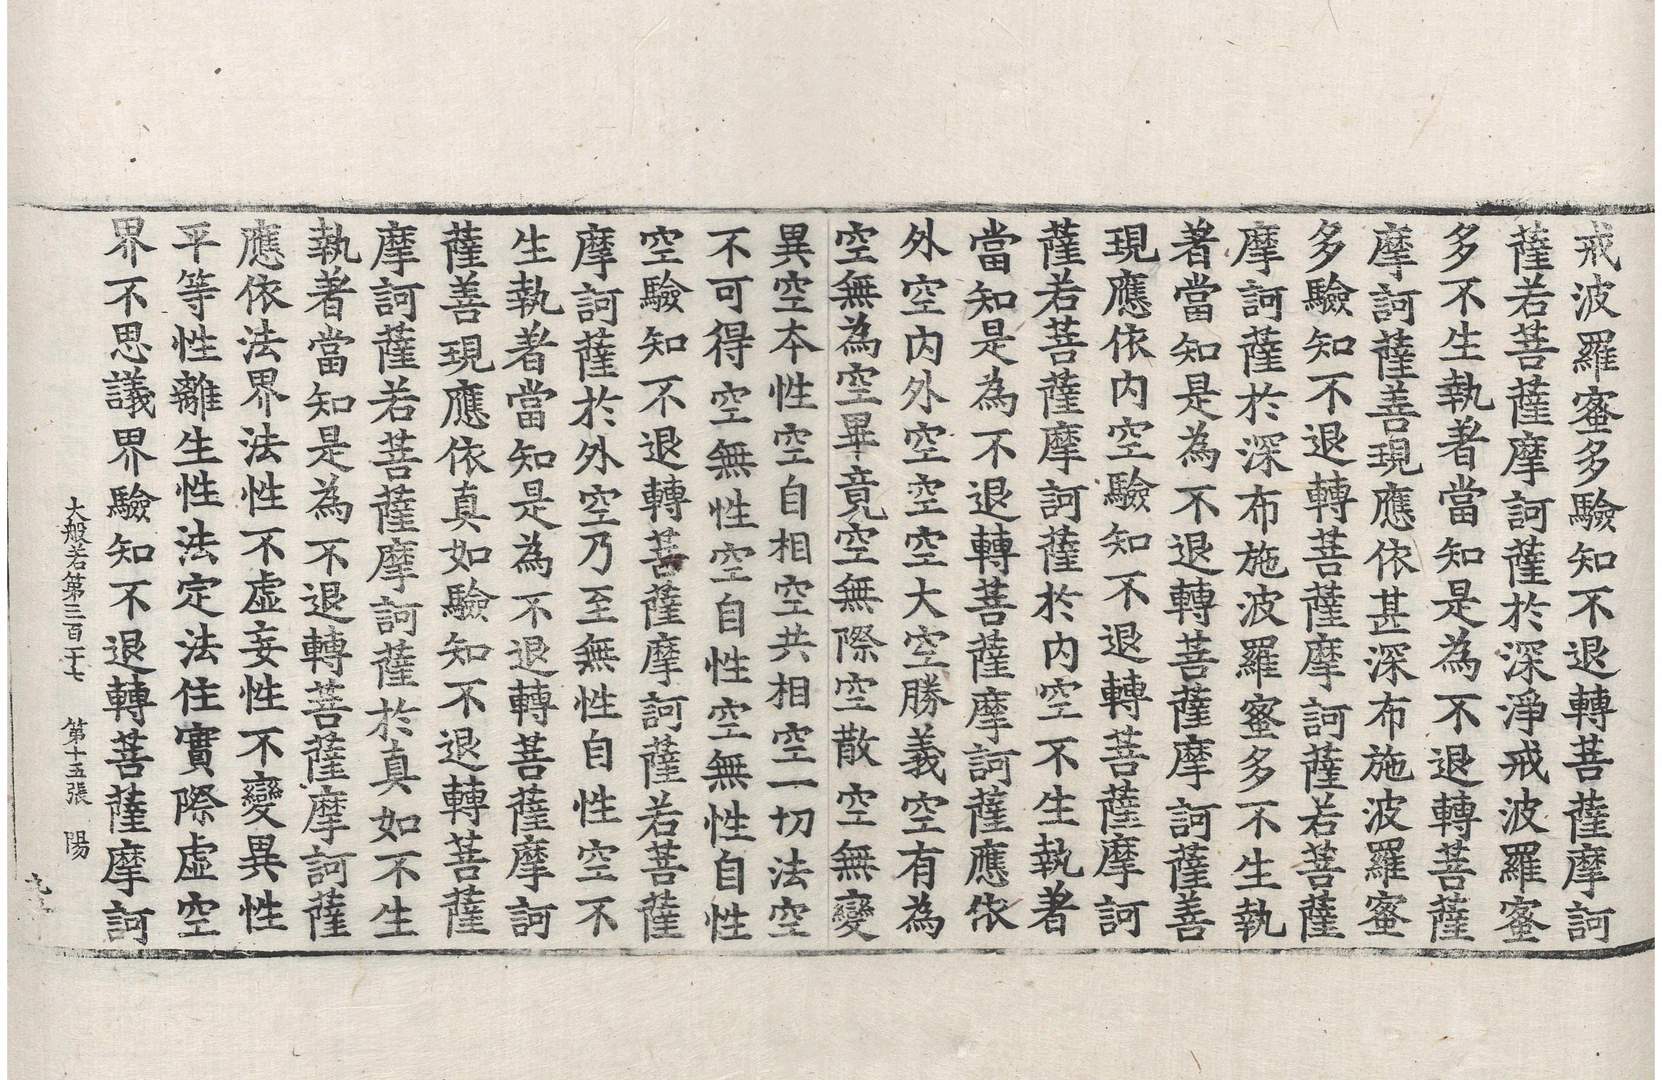 戒波羅蜜多驗知不退轉菩薩摩訶
薩若菩薩摩訶薩於深淨戒波羅蜜
多不生執著當知是為不退轉菩薩
摩訶薩善現應依甚深布施波羅蜜
多驗知不退轉菩薩摩訶薩若菩薩
摩訶薩於深布施波羅蜜多不生執
著當知是為不退轉菩薩摩訶薩善
現應依內空驗知不退轉菩薩摩訶
薩若菩薩摩訶薩於內空不生執著
當知是為不退轉菩薩摩訶薩應依
外空內外空空空大空勝義空有為
空無為空畢竟空無際空散空無變
異空本性空自相空共相空一切法空
不可得空無性空自性空無性自性
空驗知不退轉菩薩摩訶薩若菩薩
摩訶薩於外空乃至無性自性空不
生執著當知是為不退轉菩薩摩訶
薩善現應依真如驗知不退轉菩薩
摩訶薩若菩薩摩訶薩於真如不生
執著當知是為不退轉菩薩摩訶薩
應依法界法性不虛妄性不變異性
平等性離生性法定法住實際虛空
界不思議界驗知不退轉菩薩摩訶
大般若第三百二十七 第十五張 陽